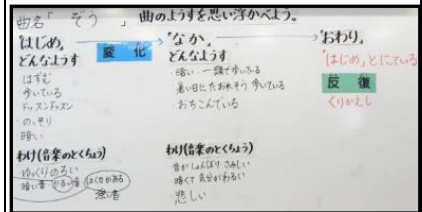 曲名「ぞう」 曲のようすを思い浮かべよう。
"はじめ"
どんなようす
はずむ
歩いている
ドッスンドッスン
のっそり
暗い
わけ(音楽のとくちょう)
ゆっくりのろい
暗い音
はく力がある
変化
"なか"
どんなようす
・暗い・一頭で歩いている
暑い日にたおれそう 歩いている
・おちこんでいる
わけ(音楽のとくちょう)
音がしょんぼり さみしい
暗くて 気分がわるい
悲しい
"おわり"
"はじめ"とにている
反復
くりかえし